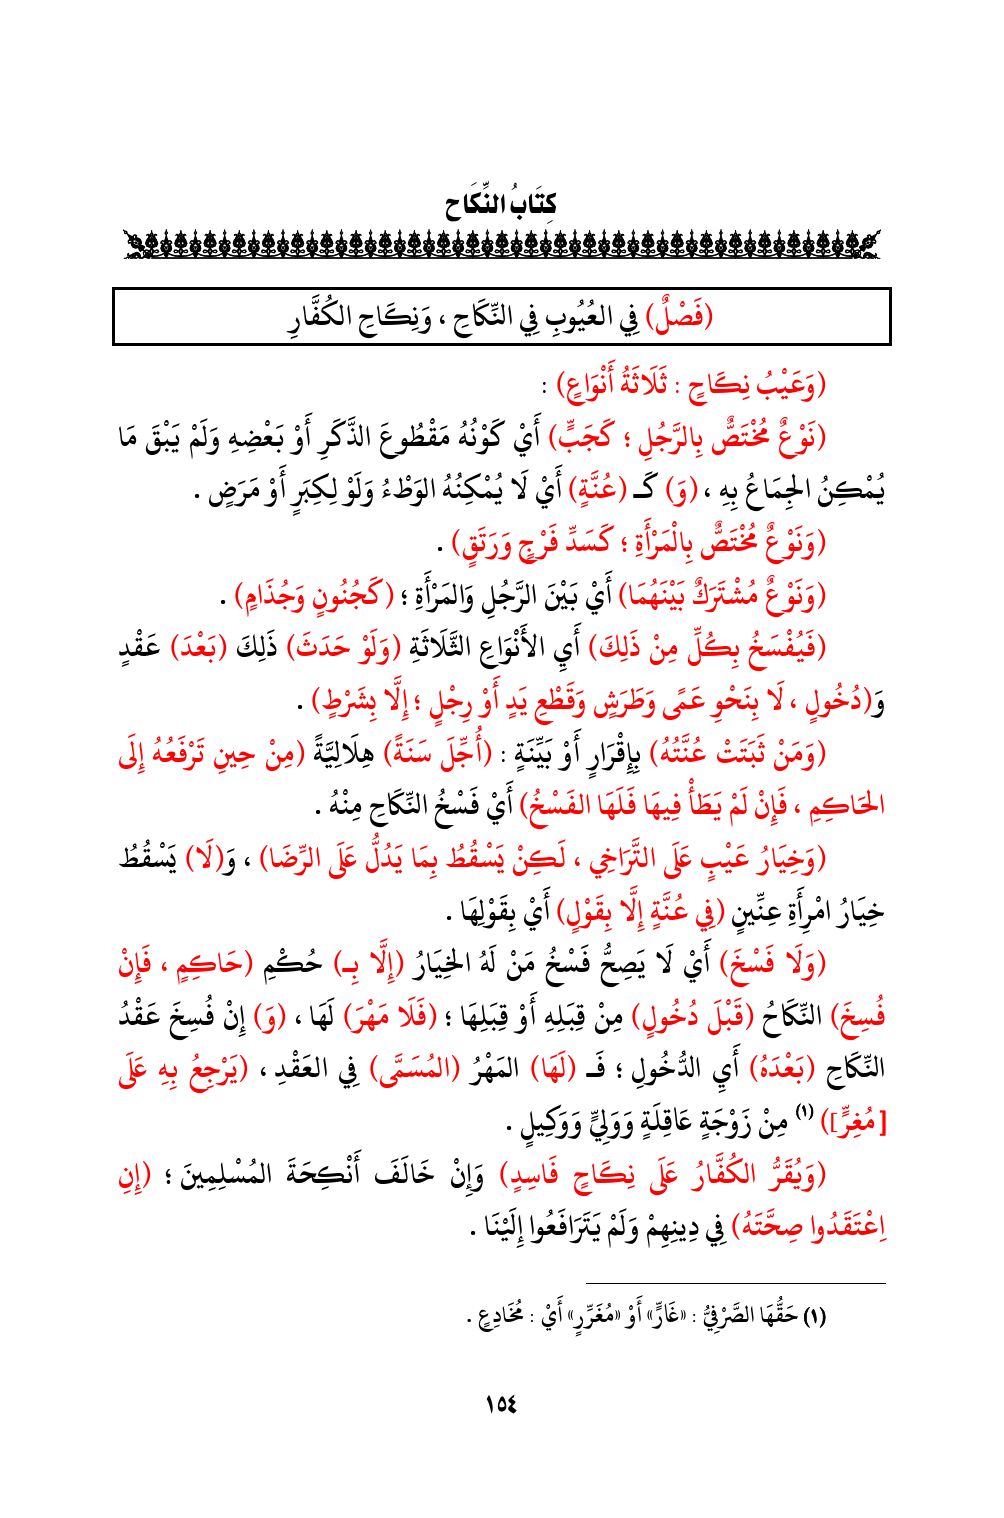 كِتَابُ النِّكَاحِ
(فَصْلٌ) فِي العُيُوبِ فِي النِّكَاحِ ، وَنِكَاحِ الكُفَّارِ
(وَعَيْبُ نِكَاحٍ : ثَلَاثَةُ أَنْوَاعٍ) :
(نَوْعٌ مُخْتَصٌّ بِالرَّجُلِ ؛ كَجَبٍّ) أَيْ كَوْنُهُ مَقْطُوعَ الذَّكَرِ أَوْ بَعْضِهِ وَلَمْ يَبْقَ مَا
يُمْكِنُ الجِمَاعُ بِهِ ، (وَ) كَـ (عُنَّةٍ) أَيْ لَا يُمْكِنُهُ الوَطْءُ وَلَوْ لِكِبَرٍ أَوْ مَرَضٍ .
(وَنَوْعٌ مُخْتَصٌّ بِالْمَرْأَةِ ؛ كَسَدِّ فَرْجٍ وَرَتَقٍ) .
(وَنَوْعٌ مُشْتَرَكٌ بَيْنَهُمَا) أَيْ بَيْنَ الرَّجُلِ وَالمَرْأَةِ ؛ (كَجُنُونٍ وَجُذَامٍ) .
(فَيُفْسَخُ بِكُلِّ مِنْ ذَلِكَ) أَيِ الأَنْوَاعِ الثَّلَاثَةِ (وَلَوْ حَدَثَ) ذَلِكَ (بَعْدَ) عَقْدٍ
وَ(دُخُولٍ ، لَا بِنَحْوِ عَمًى وَطَرَشٍ وَقَطْعِ يَدٍ أَوْ رِجْلٍ ؛ إِلَّا بِشَرْطٍ) .
(وَمَنْ ثَبَتَتْ عُنَّتُهُ) بِإِقْرَارٍ أَوْ بَيِّنَةٍ : (أُجِّلَ سَنَةً) هِلَالِيَّةً (مِنْ حِينِ تَرْفَعُهُ إِلَى
الحَاكِمِ ، فَإِنْ لَمْ يَطَأْ فِيهَا فَلَهَا الفَسْخُ) أَيْ فَسْخُ النِّكَاحِ مِنْهُ .
(وَخِيَارُ عَيْبٍ عَلَى التَّرَاخِي ، لَكِنْ يَسْقُطُ بِمَا يَدُلُّ عَلَى الرِّضَا) ، وَ(لَا) يَسْقُطُ
خِيَارُ امْرِأَةِ عِنِّينٍ (فِي عُنَّةٍ إِلَّا بِقَوْلٍ) أَيْ بِقَوْلِهَا .
(وَلَا فَسْخَ) أَيْ لَا يَصِحُّ فَسْخُ مَنْ لَهُ الخِيَارُ (إِلَّا بِـ) حُكْمِ (حَاكِمٍ ، فَإِنْ
فُسِخَ) النِّكَاحُ (قَبْلَ دُخُولٍ) مِنْ قِبَلِهِ أَوْ قِبَلِهَا ؛ (فَلَا مَهْرَ) لَهَا ، (وَ) إِنْ فُسِخَ عَقْدُ
النِّكَاحِ (بَعْدَهُ) أَيِ الدُّخُولِ ؛ فَـ (لَهَا) المَهْرُ (المُسَمَّى) فِي العَقْدِ ، (يَرْجِعُ بِهِ عَلَى
[مُغِرٍّ]) (١) مِنْ زَوْجَةٍ عَاقِلَةٍ وَوَلِيٍّ وَوَكِيلٍ .
(وَيُقَرُّ الكُفَّارُ عَلَى نِكَاحٍ فَاسِدٍ) وَإِنْ خَالَفَ أَنْكِحَةَ المُسْلِمِينَ ؛ (إِنِ
اِعْتَقَدُوا صِحَّتَهُ) فِي دِينِهِمْ وَلَمْ يَتَرَافَعُوا إِلَيْنَا .
(١) حَقُّهَا الصَّرْفِيُّ : «غَارٍّ» أَوْ «مُغَرِّرٍ» أَيْ : مُخَادِعٍ .
١٥٤